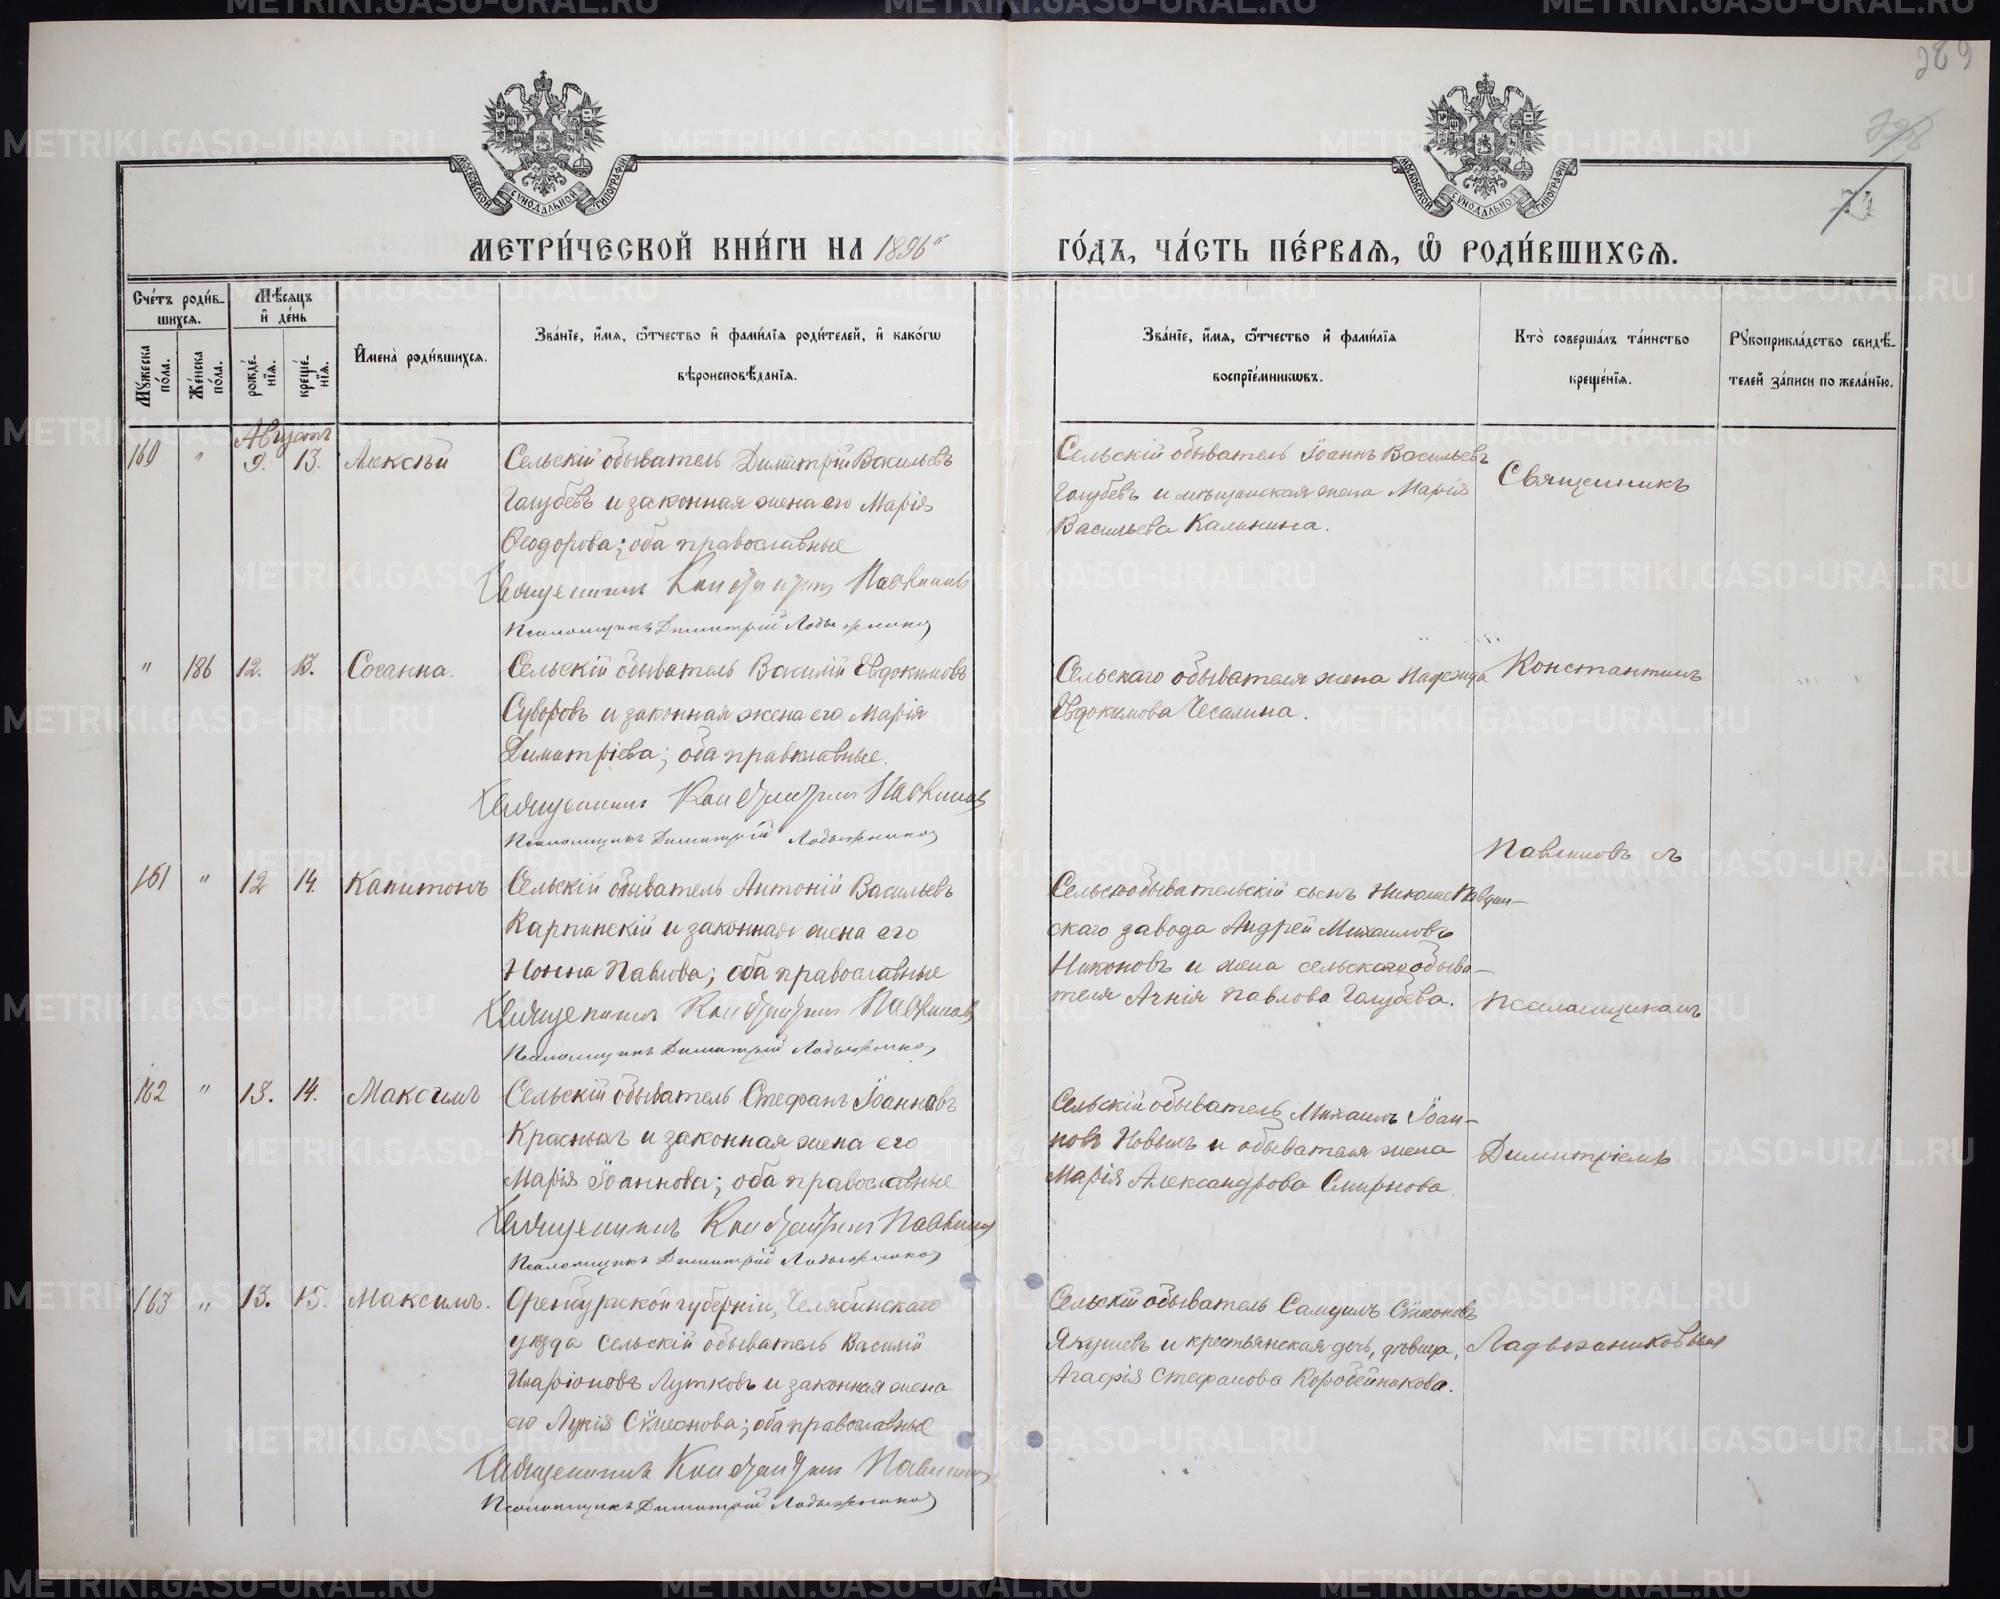 289
МОСКОВСКОЙ СѴНОДАЛЬНОЙ ТИПОГРАФІИ
МОСКОВСКОЙ СѴНОДАЛЬНОЙ ТИПОГРАФІИ
МЕТРИ́ЧЕСКОЙ КНИ́ГИ НА 1896й
ГО́ДЪ, ЧА́СТЬ ПЕ́РВАѦ, Ѡ҆ РОДИ́ВШИХСѦ.
Сче́тъ роди́в-
шихсѧ.
Мꙋ́жеска по́ла.
Же́нска по́ла.
Мѣ́сѧцъ
и҆ де́нь
рожде́-
нїѧ.
креще́-
нїѧ.
И҆мена̀ роди́вшихсѧ.
Зва́нїе, и҆́мѧ, ѻ҆́тчество и҆ фами́лїѧ роди́телей, и҆ како́гѡ
вѣроисповѣ́данїѧ.
Зва́нїе, и҆́мѧ, ѻ҆́тчество и҆ фами́лїѧ
воспрїе́мникѡвъ.
Кто̀ соверша́лъ та́инство
креще́нїѧ.
Рꙋкоприкла́дство свидѣ́-
телей за́писи по жела́нїю.
Августъ
160 " 9. 13. Алексѣй
Сельскій обыватель Димитрій Васильевъ
Голубевъ и законная жена его Марія
Ѳеодорова; оба православные
Священникъ Константинъ Павлиновъ
Псаломщикъ Димитрій Ладыжниковъ
Сельскій обыватель Іоаннъ Васильевъ
Голубевъ и мѣщанская жена Марія
Васильева Калинина.
Священникъ
" 186 12. 13. Сосанна.
Сельскій обыватель Василій Евдокимовъ
Суворовъ и законная жена его Марія
Димитріева; оба православные.
Священникъ Константинъ Павлиновъ
Псаломщикъ Димитрій Ладыжниковъ
Сельскаго обывателя жена Надежда
Евдокимова Чесалина.
Константинъ
Павлиновъ съ
161 " 12 14. Капитонъ
Сельскій обыватель Антоній Васильевъ
Карпинскій и законная жена его
Нонна Павлова; оба православные
Священникъ Константинъ Павлиновъ
Псаломщикъ Димитрій Ладыжниковъ
Сельскообывательскій сынъ Николае Павдин-
скаго завода Андрей Михаиловъ
Никоновъ и жена сельскаго обыва-
теля Агнія Павлова Голубева.
Псаломщикомъ
162 " 13. 14. Максимъ
Сельскій обыватель Стефанъ Іоанновъ
Красныхъ и законная жена его
Марія Іоаннова; оба православные
Священникъ Константинъ Павлиновъ
Псаломщикъ Димитрій Ладыжниковъ
Сельскій обыватель Михаилъ Іоан-
новъ Новыхъ и обывателя жена
Марія Александрова Смирнова
Димитріемъ
163 " 13. 15. Максимъ.
Оренбургской губерніи, Челябинскаго
уѣзда сельскій обыватель Василій
Иларіоновъ Лутковъ и законная жена
его Лукія Сѵмеонова; оба православные
Священникъ Константинъ Павлиновъ
Псаломщикъ Димитрій Ладыжниковъ
Сельскій обыватель Самуилъ Сѵмеоновъ
Якушевъ и крестьянская дочь, дѣвица,
Агафія Стефанова Коробейникова.
Ладыжниковымъ
METRIKI.GASO-URAL.RU